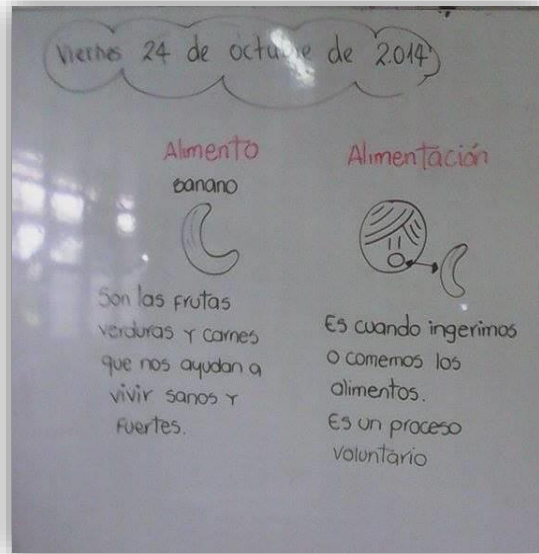 Viernes 24 de octubre de 2.014
Alimento
banano
Son las frutas
verduras y carnes
que nos ayudan a
vivir sanos y
fuertes.
Alimentación
Es cuando ingerimos
o comemos los
alimentos.
Es un proceso
voluntario